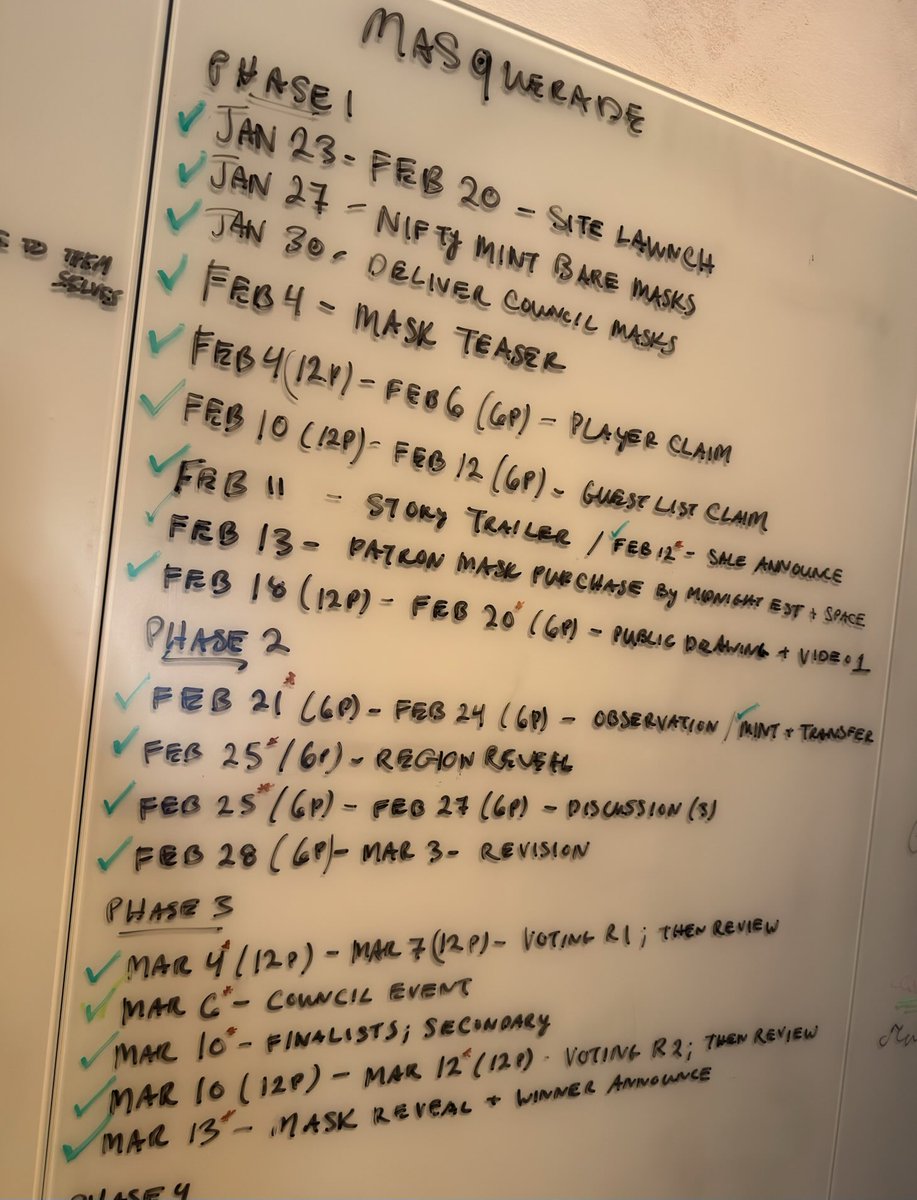 MASQUERADE
PHASE 1
✓ JAN 23 - FEB 20 - SITE LAUNCH
✓ JAN 27 - NIFTY MINT BARE MASKS
✓ JAN 30 - DELIVER COUNCIL MASKS
✓ FEB 4 - MASK TEASER
✓ FEB 4 (12P) - FEB 6 (6P) - PLAYER CLAIM
✓ FEB 10 (12P) - FEB 12 (6P) - GUEST LIST CLAIM
✓ FEB 11 - STORY TRAILER / ✓ FEB 12* - SALE ANNOUNCE
✓ FEB 13 - PATRON MASK PURCHASE BY MIDNIGHT EST + SPACE
✓ FEB 18 (12P) - FEB 20* (6P) - PUBLIC DRAWING + VIDEO 1
PHASE 2
✓ FEB 21* (6P) - FEB 24 (6P) - OBSERVATION / ✓ MINT + TRANSFER
✓ FEB 25* (6P) - REGION REVEAL
✓ FEB 25* (6P) - FEB 27 (6P) - DISCUSSION (S)
✓ FEB 28 (6P) - MAR 3 - REVISION
PHASE 3
✓ MAR 4* (12P) - MAR 7 (12P) - VOTING R1; THEN REVIEW
✓ MAR 6* - COUNCIL EVENT
✓ MAR 10* - FINALISTS; SECONDARY
✓ MAR 10 (12P) - MAR 12* (12P) - VOTING R2; THEN REVIEW
✓ MAR 13* - MASK REVEAL + WINNER ANNOUNCE
PHASE 4
TO THEM
SELVES